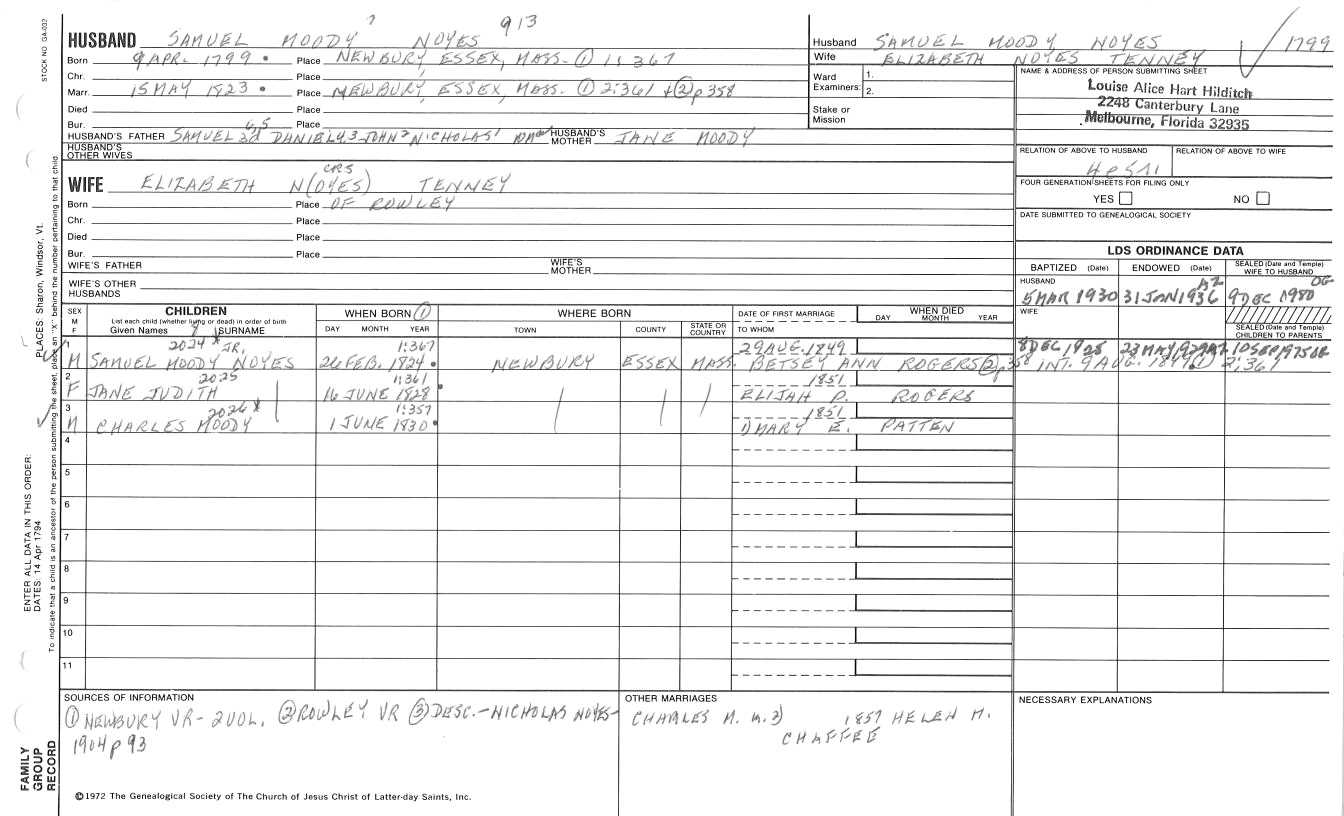 STOCK NO GA-032
913
HUSBAND SAMUEL MOODY NOYES
Born 9 APR. 1799 Place NEWBURY, ESSEX, MASS. ① 1:367
Chr. Place
Marr. 15 MAY 1823 Place NEWBURY, ESSEX, MASS. ① 2:361 + ② p 358
Died Place
Bur. Place
HUSBAND'S FATHER SAMUEL DANIEL JOHN NICHOLAS HUSBAND'S MOTHER JANE MOODY
HUSBAND'S OTHER WIVES
WIFE ELIZABETH N(OYES) TENNEY
Born Place OF ROWLEY
Chr. Place
Died Place
Bur. Place
WIFE'S FATHER WIFE'S MOTHER
WIFE'S OTHER HUSBANDS
Husband SAMUEL MOODY NOYES 1799
Wife ELIZABETH NOYES TENNEY
Ward Examiners: 1.
2.
Stake or Mission
NAME & ADDRESS OF PERSON SUBMITTING SHEET
Louise Alice Hart Hilditch
2248 Canterbury Lane
Melbourne, Florida 32935
RELATION OF ABOVE TO HUSBAND RELATION OF ABOVE TO WIFE
FOUR GENERATION SHEETS FOR FILING ONLY
YES NO
DATE SUBMITTED TO GENEALOGICAL SOCIETY
LDS ORDINANCE DATA
BAPTIZED (Date) ENDOWED (Date) SEALED (Date and Temple) WIFE TO HUSBAND
HUSBAND
5 MAR 1930 31 JAN 1936 AZ 9 DEC 1980 OG
WIFE
SEALED (Date and Temple) CHILDREN TO PARENTS
SEX M F CHILDREN WHEN BORN ① WHERE BORN DATE OF FIRST MARRIAGE WHEN DIED
List each child (whether living or dead) in order of birth
Given Names SURNAME DAY MONTH YEAR TOWN COUNTY STATE OR COUNTRY TO WHOM DAY MONTH YEAR
1 2024 JR. 1:367 29 AUG. 1849
M SAMUEL MOODY NOYES 26 FEB. 1824 NEWBURY ESSEX MASS. BETSEY ANN ROGERS ② p 358 INT. 9 AUG. 1849 ① 2:361
8 DEC 1925 10 SEP 1975
2 2025 1:361 1851
F JANE JUDITH 16 JUNE 1828 ELIJAH P. ROGERS
3 2026 1:357 1851
M CHARLES MOODY 1 JUNE 1830 1) MARY E. PATTEN
4
5
6
7
8
9
10
11
SOURCES OF INFORMATION
① NEWBURY VR - 2 VOL. ② ROWLEY VR ③ DESC. - NICHOLAS NOYES -
1904 p 93
OTHER MARRIAGES
CHARLES M. 1857 HELEN M.
CHAFFEE
NECESSARY EXPLANATIONS
©1972 The Genealogical Society of The Church of Jesus Christ of Latter-day Saints, Inc.
FAMILY GROUP RECORD
ENTER ALL DATA IN THIS ORDER:
DATES: 14 Apr 1794
PLACES: Sharon, Windsor, Vt.
To indicate that a child is an ancestor of the person submitting the sheet, place an "X" behind the number pertaining to that child.